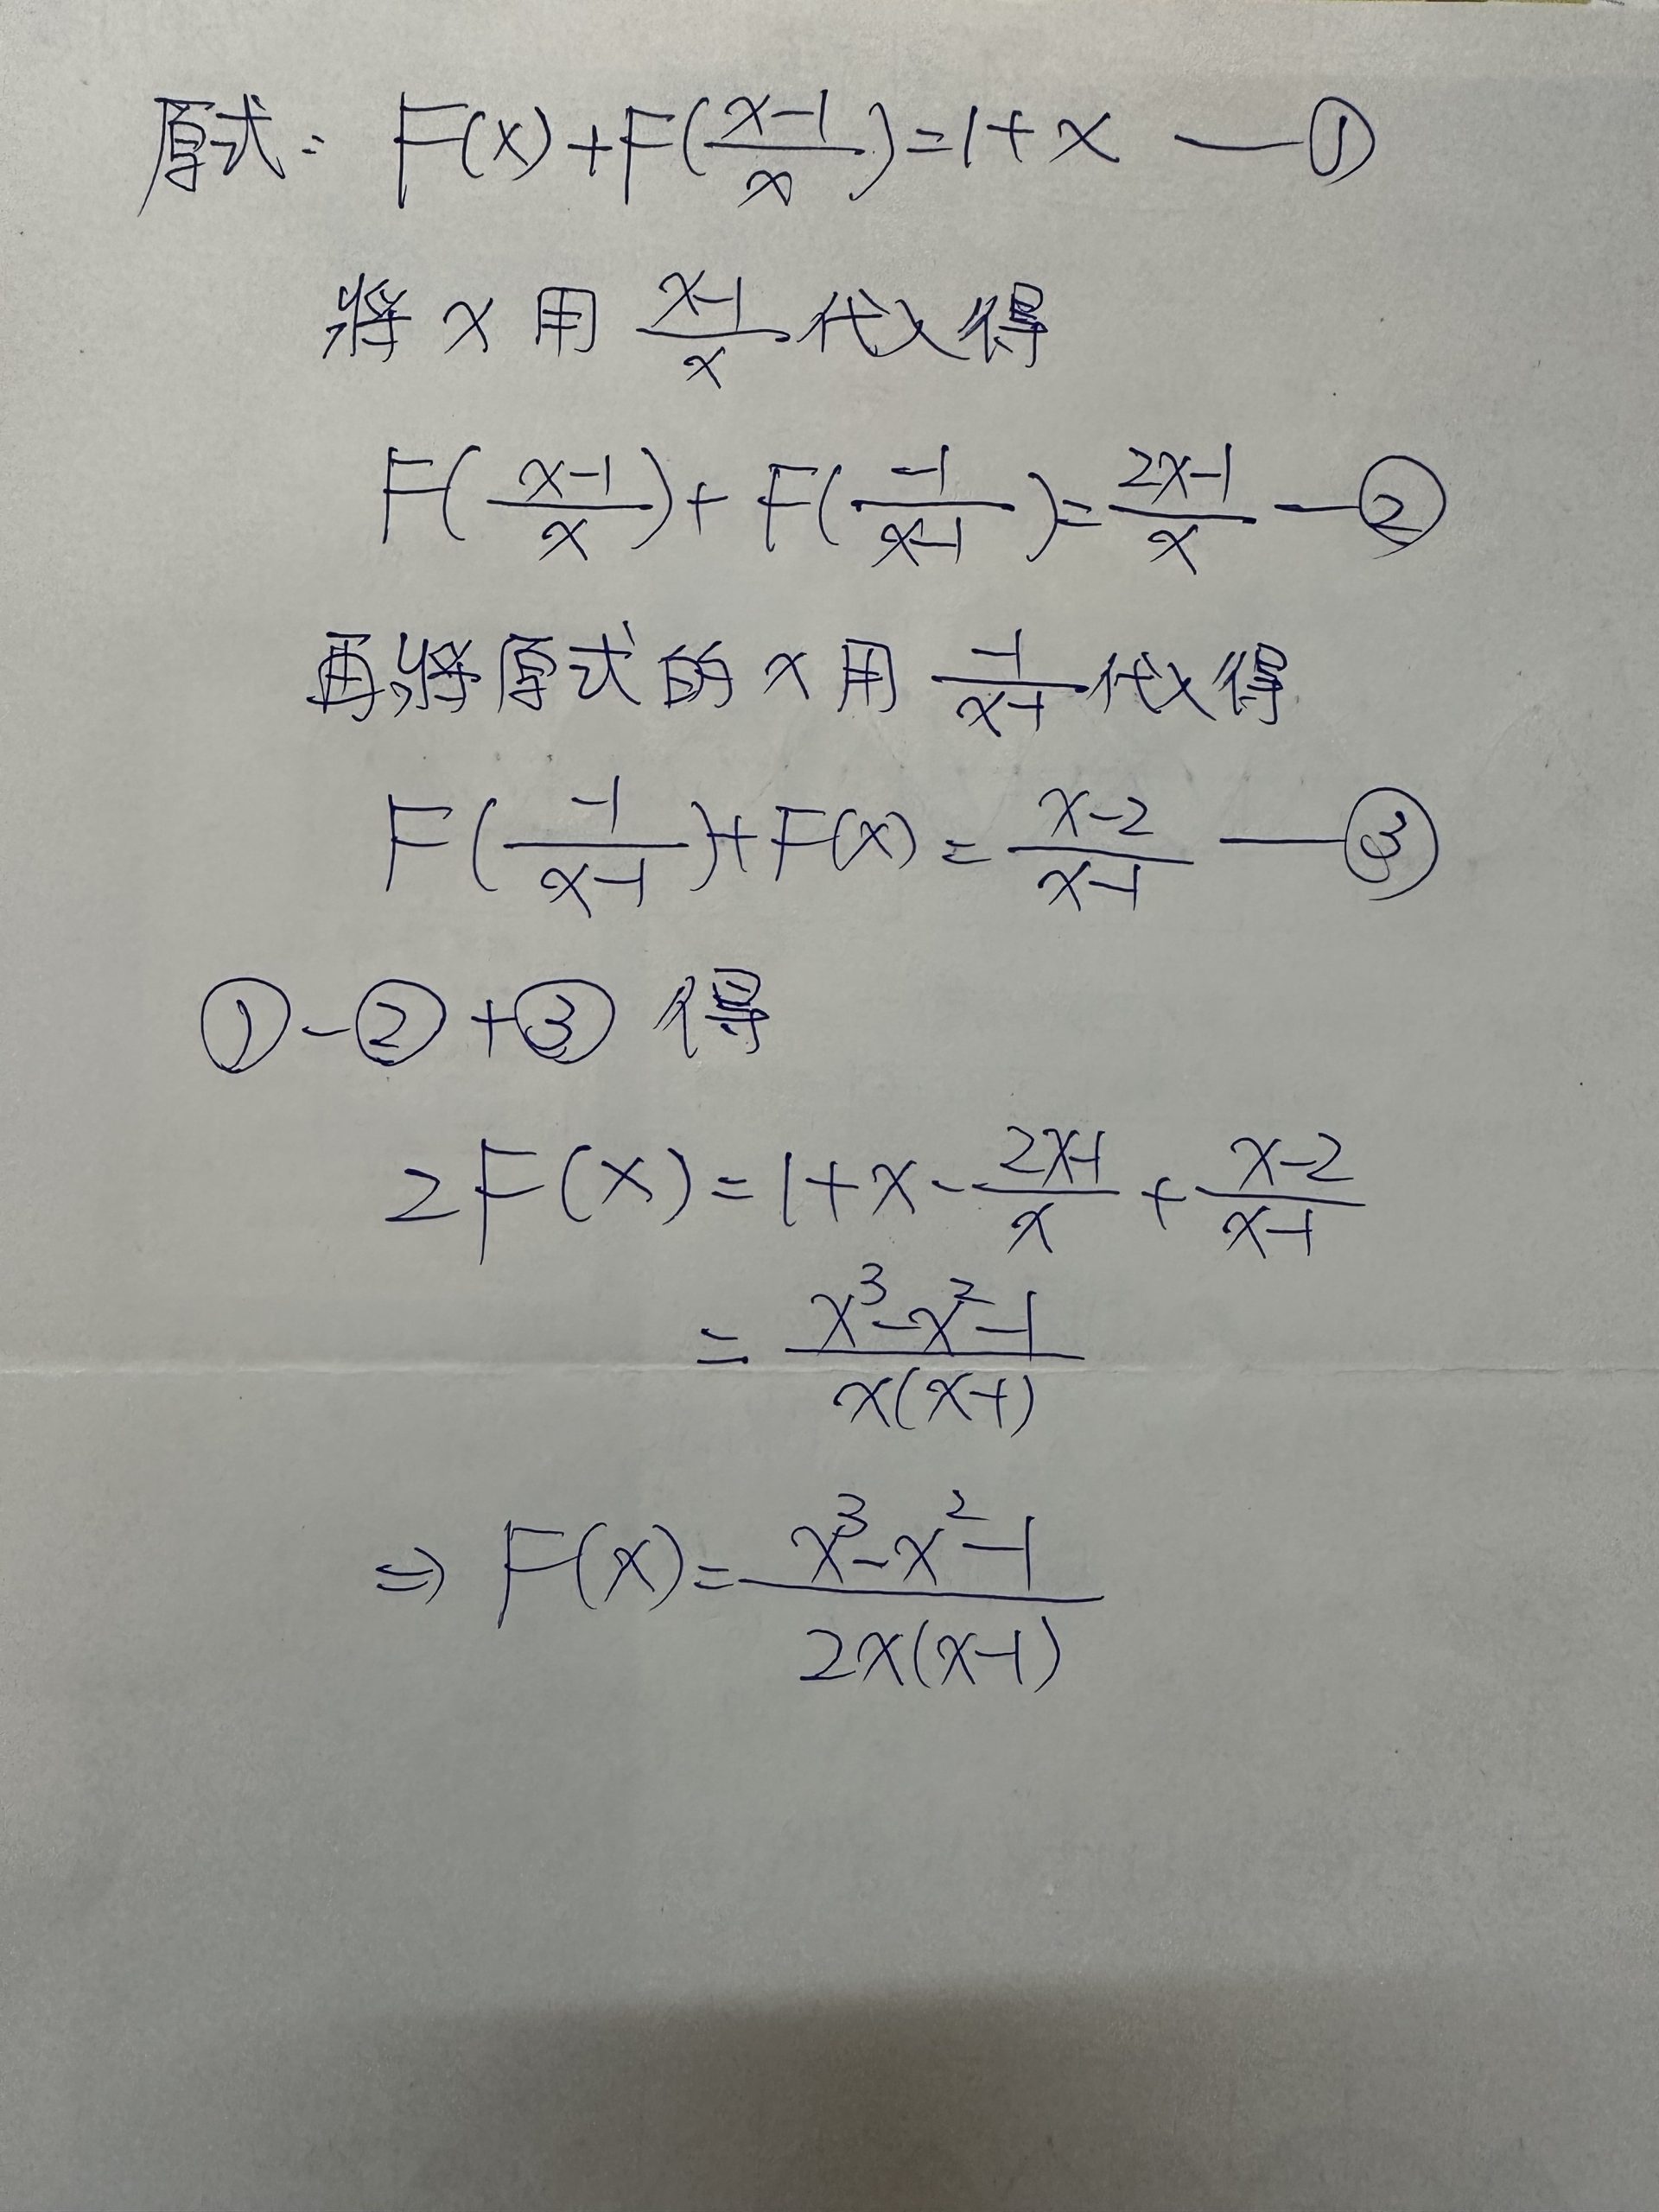 原式: F(x)+F(\frac{x-1}{x})=1+x —①
將 x 用 \frac{x-1}{x} 代入得
F(\frac{x-1}{x})+F(\frac{-1}{x-1})=\frac{2x-1}{x} —②
再將原式的 x 用 \frac{-1}{x-1} 代入得
F(\frac{-1}{x-1})+F(x)=\frac{x-2}{x-1} —③
①-②+③ 得
2F(x)=1+x-\frac{2x-1}{x}+\frac{x-2}{x-1}
=\frac{x^3-x^2-1}{x(x-1)}
⇒ F(x)=\frac{x^3-x^2-1}{2x(x-1)}